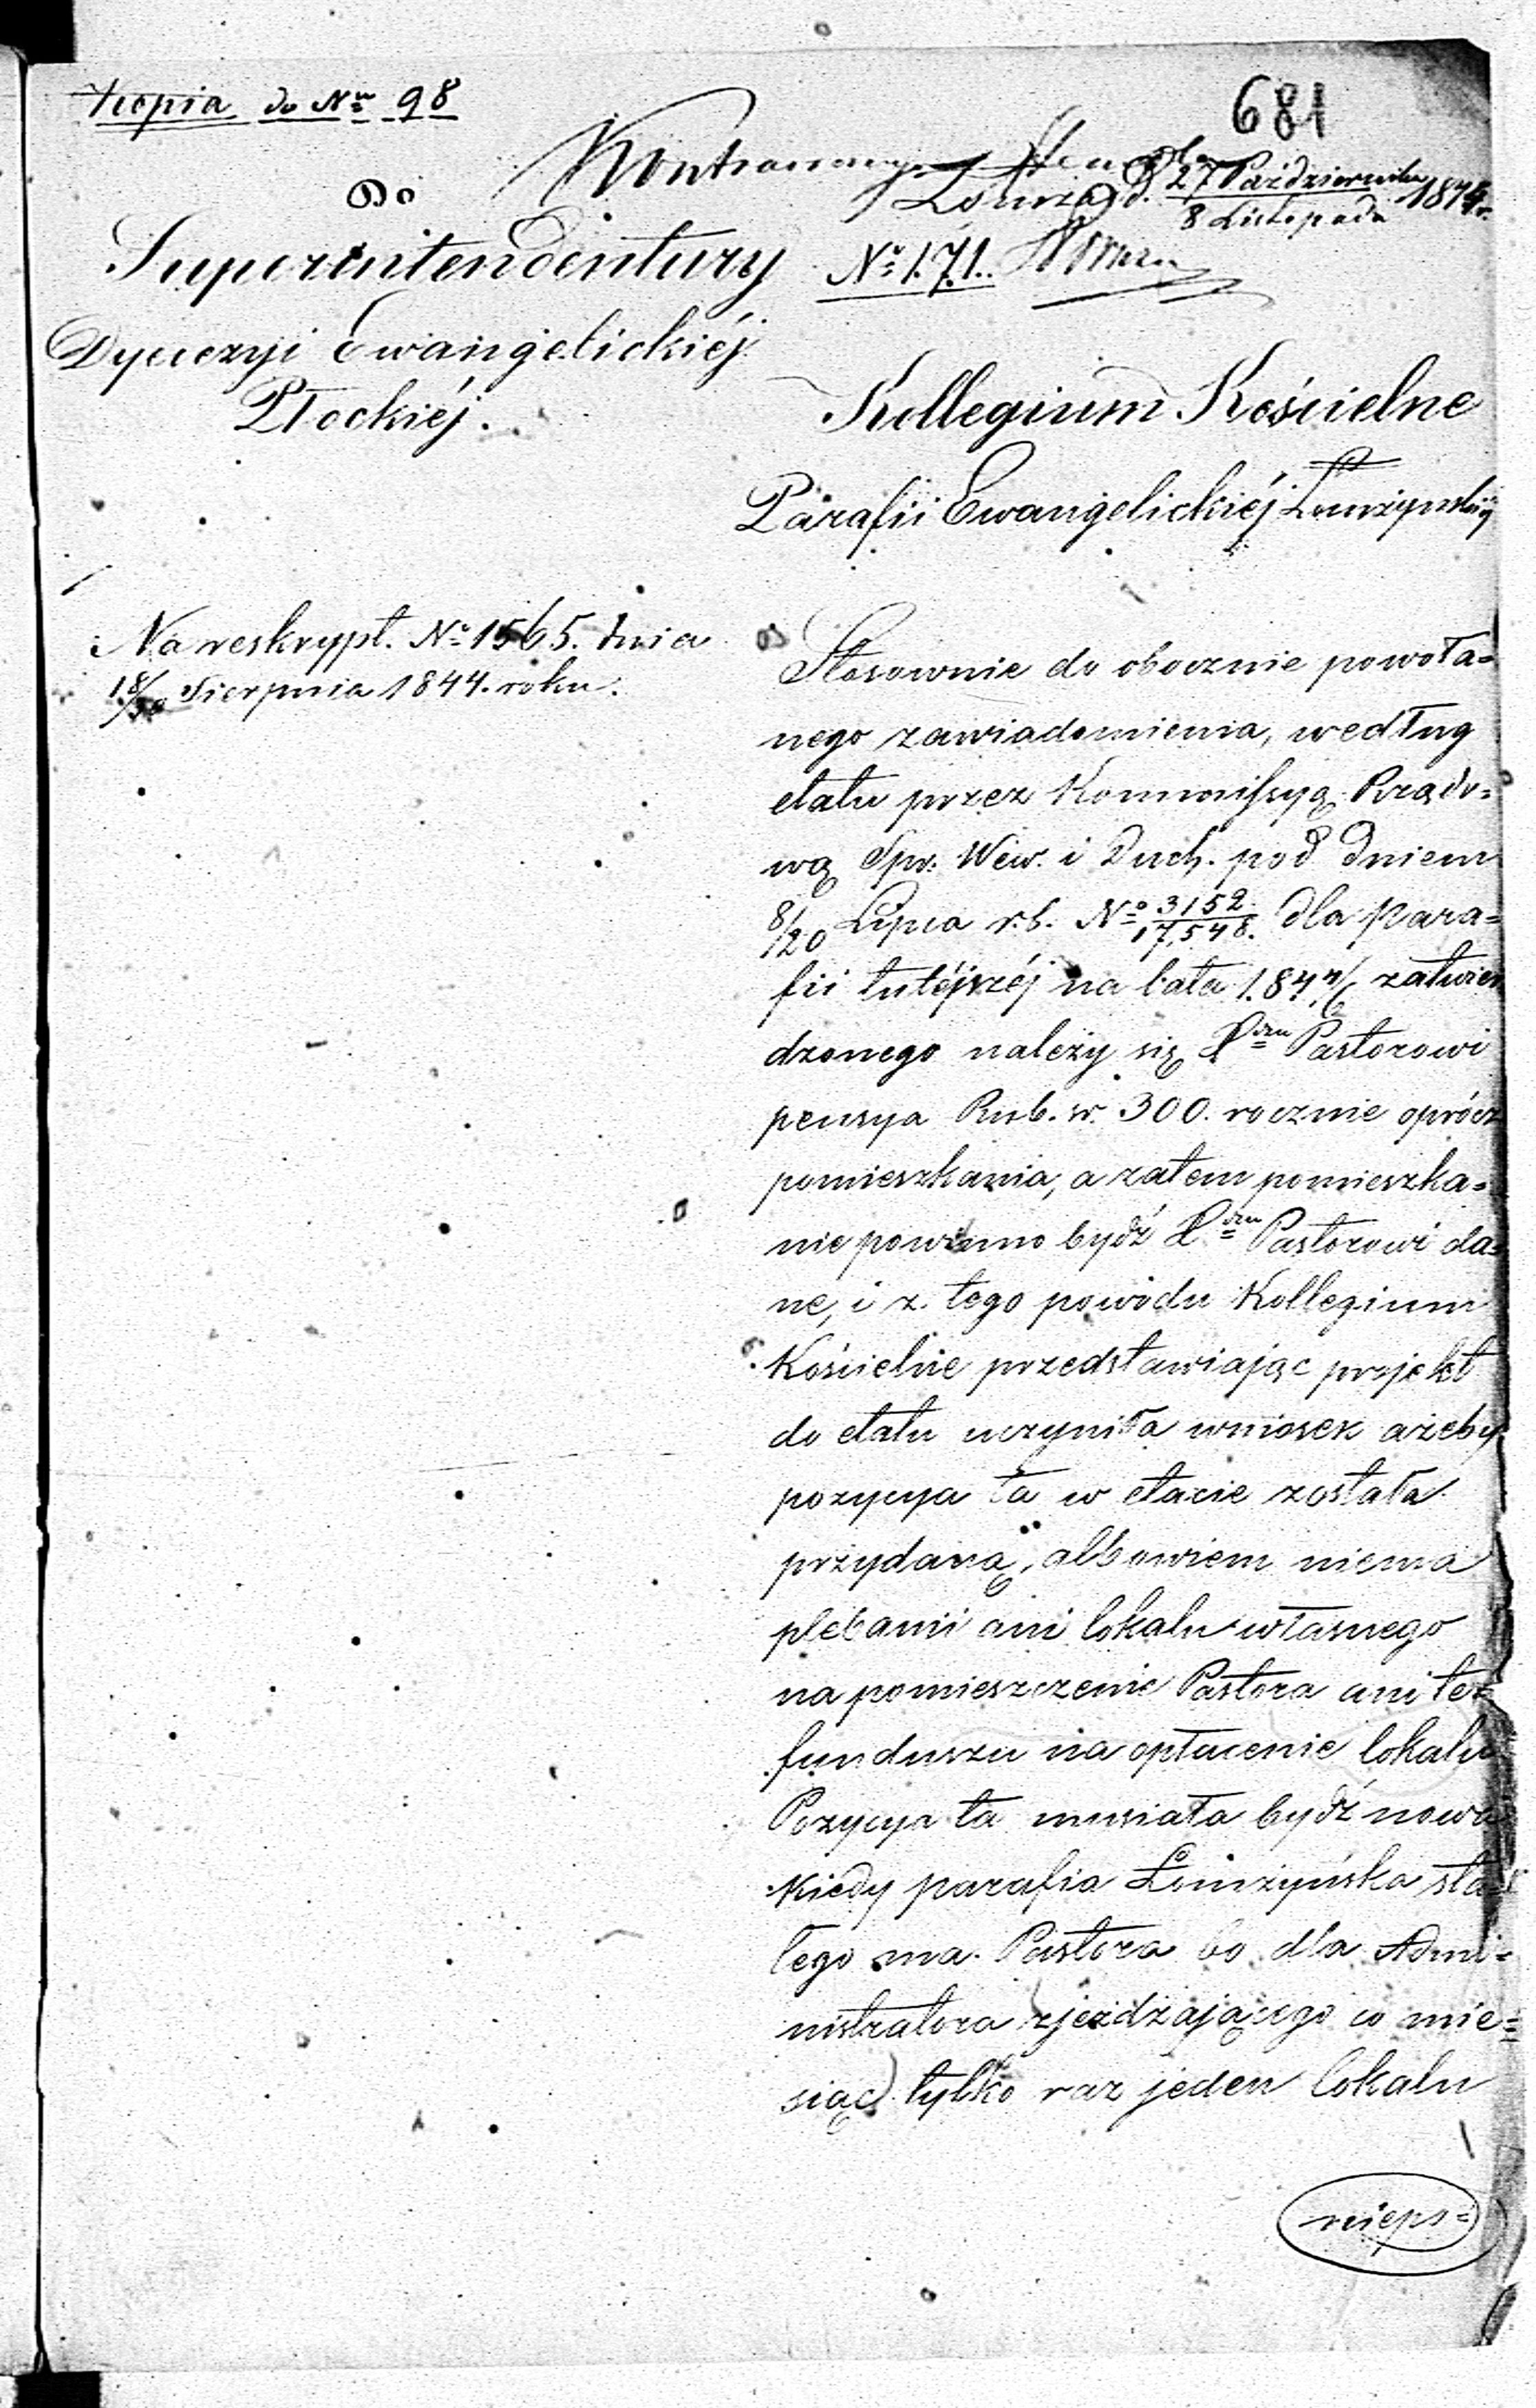 Kopia do Nru 98
681
Do
Łomża d. 27 Października 1844 r.
8 Listopada
Superintendentury
No 171.
Dyecezyi Ewangelickiéj
Płockiéj.
Kollegium Kościelne
Parafii Ewangelickiéj Łomżyńskiéj
Na reskrypt. No 1565. dnia
18/30 Sierpnia 1844. roku.
Stosownie do obocznie powoła=
nego zawiadomienia, według
etatu przez Kommissyą Rządo=
wą Spr. Wew. i Duch. pod dniem
8/20 Lipca r. b. No 3152/17,548. dla Para=
fii tutéjszéj na lata 184 4/6 zatwier
dzonego należy się Pastorowi
pensya Rub. sr. 300. rocznie oprócz
pomieszkania, a zatem pomieszka=
nie powinno bydź Pastorowi da=
ne, i z tego powodu Kollegium
Kościelne przedstawiając projekt
do etatu uczyniła wniosek ażeby
pozycya ta w etacie została
przydaną, albowiem niema
plebanii ani lokalu własnego
na pomieszczenie Pastora ani też
funduszu na opłacenie lokalu
Pozycya ta musiała bydź nowa
kiedy parafia Łomżyńska sta=
łego ma Pastora bo dla Admi=
nistratora zjeżdżającego co mie=
siąc tylko raz jeden lokalu
niepo=